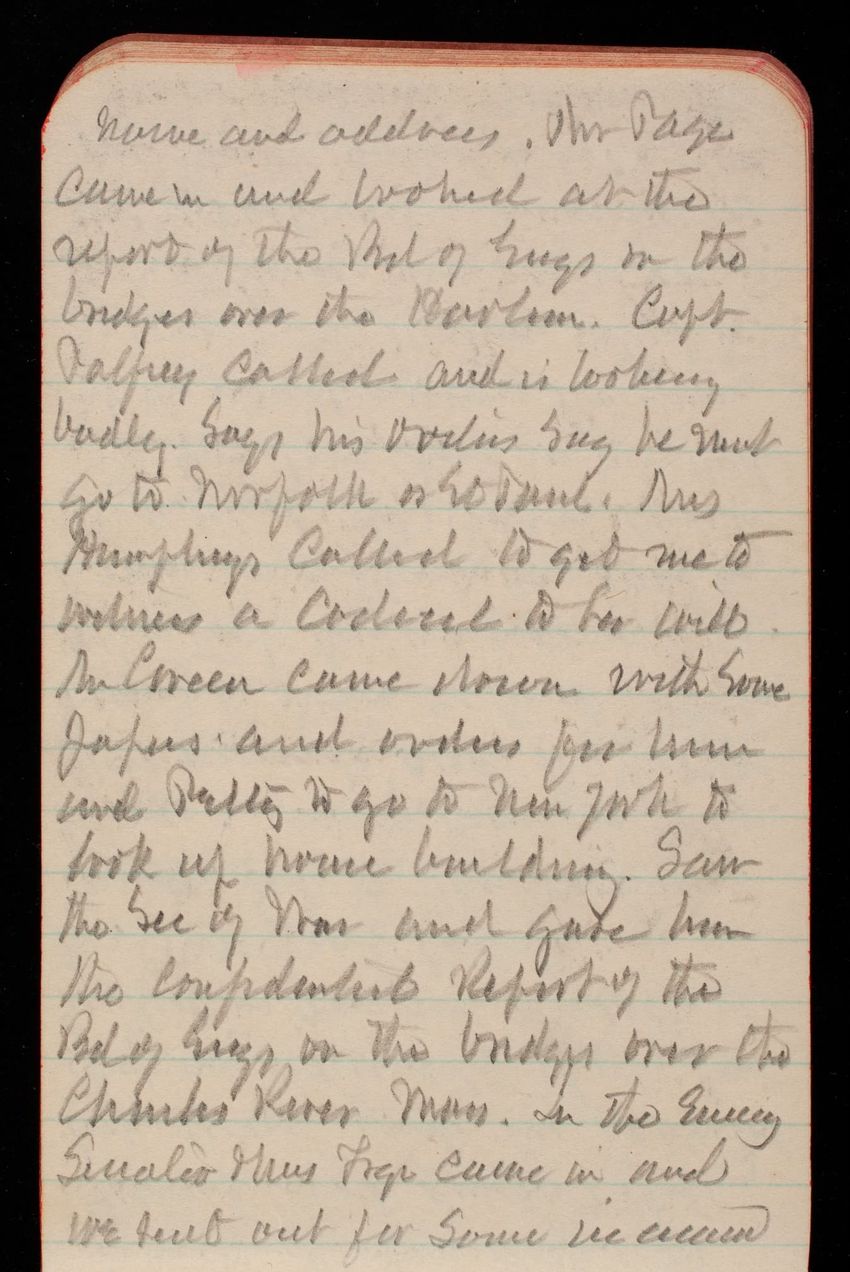 name and address. Mr Page
came in and looked at the
report of the Bd of Engs on the
bridges over the Harlem. Capt.
Palfrey called and is looking
badly. Says his orders say he must
go to Norfolk or St Paul. Mrs
Humphreys called to get me to
witness a Codicil to her will.
Mr Green came down with some
papers and orders for him
and Petty to go to New York to
look up house building. Saw
the Sec of War and gave him
the confidential Report of the
Bd of Engs on the bridges over the
Charles River Mass. In the Eveng
Senator & Mrs Frye came in and
we sent out for some ice cream